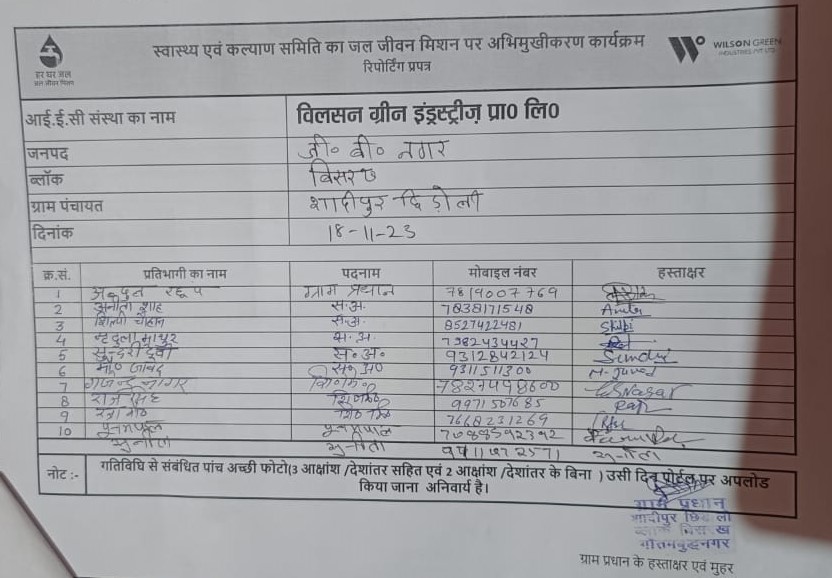 स्वास्थ्य एवं कल्याण समिति का जल जीवन मिशन पर अभिमुखीकरण कार्यक्रम
रिपोर्टिंग प्रपत्र
हर घर जल
जल जीवन मिशन
WILSON GREEN
INDUSTRIES PVT LTD
आई.ई.सी संस्था का नाम विलसन ग्रीन इंड्स्ट्रीज़ प्रा० लि०
जनपद जी० बी० नगर
ब्लॉक बिसरख
ग्राम पंचायत शादीपुर छिडोली
दिनांक 18-11-23
क्र.सं. प्रतिभागी का नाम पदनाम मोबाईल नंबर हस्ताक्षर
1 ग्राम प्रधान 7819007769
2 अनीता शाह स.अ. 7838171548 Anita
3 शिल्पी चौहान स.अ. 8527422481 Shilpi
4 मृदुला माथुर स.अ. 7982434427
5 सुन्दरी देवी स०अ० 9312842124 Sundri
6 मो० जावेद स०अ० 9311511300
7 गजेन्द्र नागर 7827498600 GSNagar
8 राज सिंह 9971507685 Raj
9 7668231269
10 पूनमपाल पूनमपाल 7088592392
सुनीता सुनीता सुनीता
नोट :- गतिविधि से संबंधित पांच अच्छी फोटो(3 आक्षांश /देशांतर सहित एवं 2 आक्षांश /देशांतर के बिना ) उसी दिन पोर्टल पर अपलोड
किया जाना अनिवार्य है।
ग्राम प्रधान
शादीपुर छिडोली
ब्लाक बिसरख
गौतमबुद्धनगर
ग्राम प्रधान के हस्ताक्षर एवं मुहर